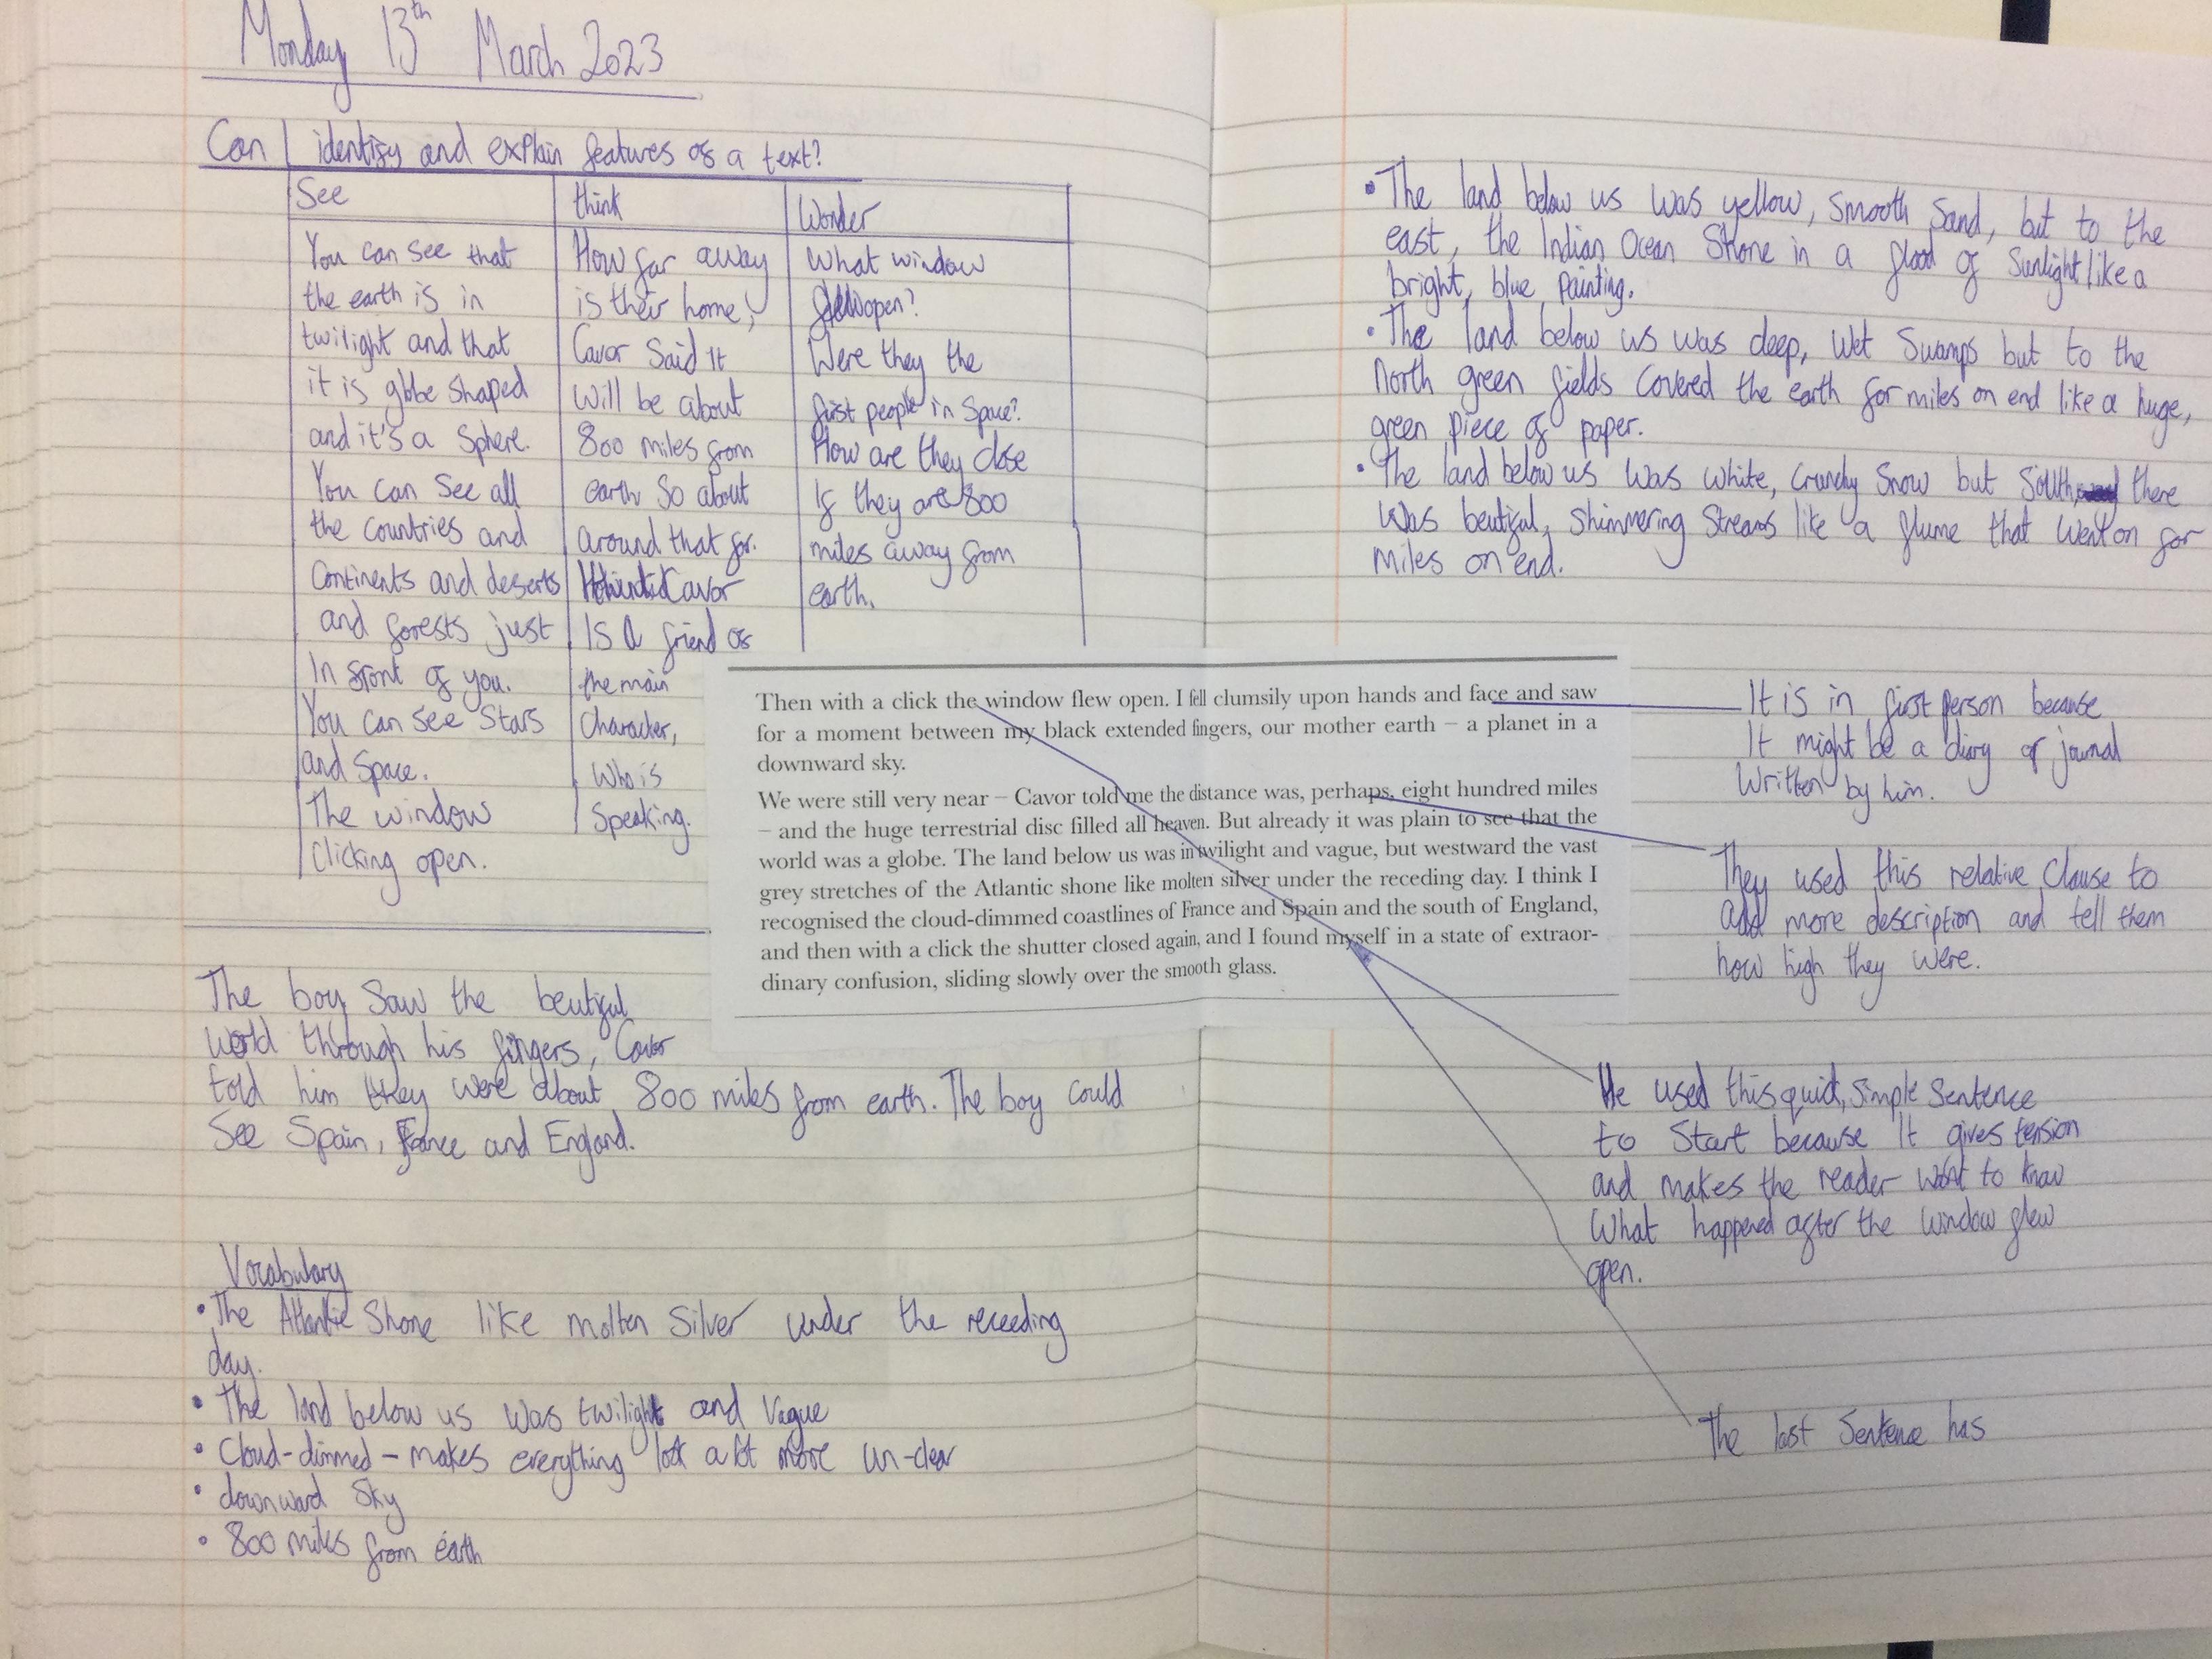 Monday 13th March 2023
Can I identify and explain features of a text?
See
You can see that
the earth is in
twilight and that
it is globe shaped
and it's a sphere.
You can see all
the countries and
continents and deserts
and forests just
in front of you.
You can see stars
and space.
The window
clicking open.
think
How far away
is their home,
Cavor said it
will be about
800 miles from
earth so about
around that far.
Cavor
Is a friend of
the main
character,
who is
speaking.
Wonder
What window
open?
Were they the
first people in space?
How are they close
If they are 800
miles away from
earth.
The boy saw the beutiful
world through his fingers, Cavor
told him they were about 800 miles from earth. The boy could
see Spain, France and England.
Vocabulary
• The Atlantic shone like molten silver under the receeding
day.
• The land below us was twilight and vague
• Cloud-dimmed - makes everything look a lot more un-clear
• downward sky
• 800 miles from earth
Then with a click the window flew open. I fell clumsily upon hands and face and saw
for a moment between my black extended fingers, our mother earth – a planet in a
downward sky.
We were still very near – Cavor told me the distance was, perhaps, eight hundred miles
– and the huge terrestrial disc filled all heaven. But already it was plain to see that the
world was a globe. The land below us was in twilight and vague, but westward the vast
grey stretches of the Atlantic shone like molten silver under the receding day. I think I
recognised the cloud-dimmed coastlines of France and Spain and the south of England,
and then with a click the shutter closed again, and I found myself in a state of extraor-
dinary confusion, sliding slowly over the smooth glass.
• The land below us was yellow, smooth sand, but to the
east, the Indian Ocean shone in a flood of sunlight like a
bright, blue painting.
• The land below us was deep, wet swamps but to the
North green fields covered the earth for miles on end like a huge,
green piece of paper.
• The land below us was white, crunchy snow but south, there
was beutiful, shimmering streams like a flume that went on for
miles on end.
It is in first person because
It might be a diary or journal
written by him.
They used this relative clause to
add more description and tell them
how high they were.
He used this quick, simple sentence
to start because it gives tension
and makes the reader want to know
what happened after the window flew
open.
The last sentence has